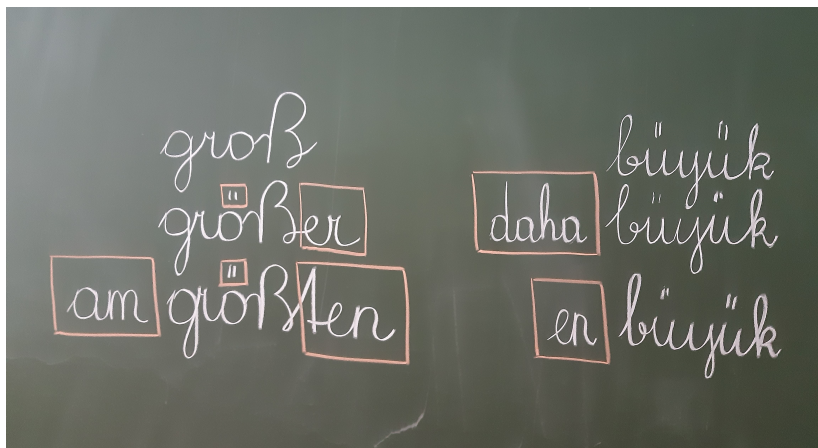 groß
größer
am größten
büyük
daha büyük
en büyük